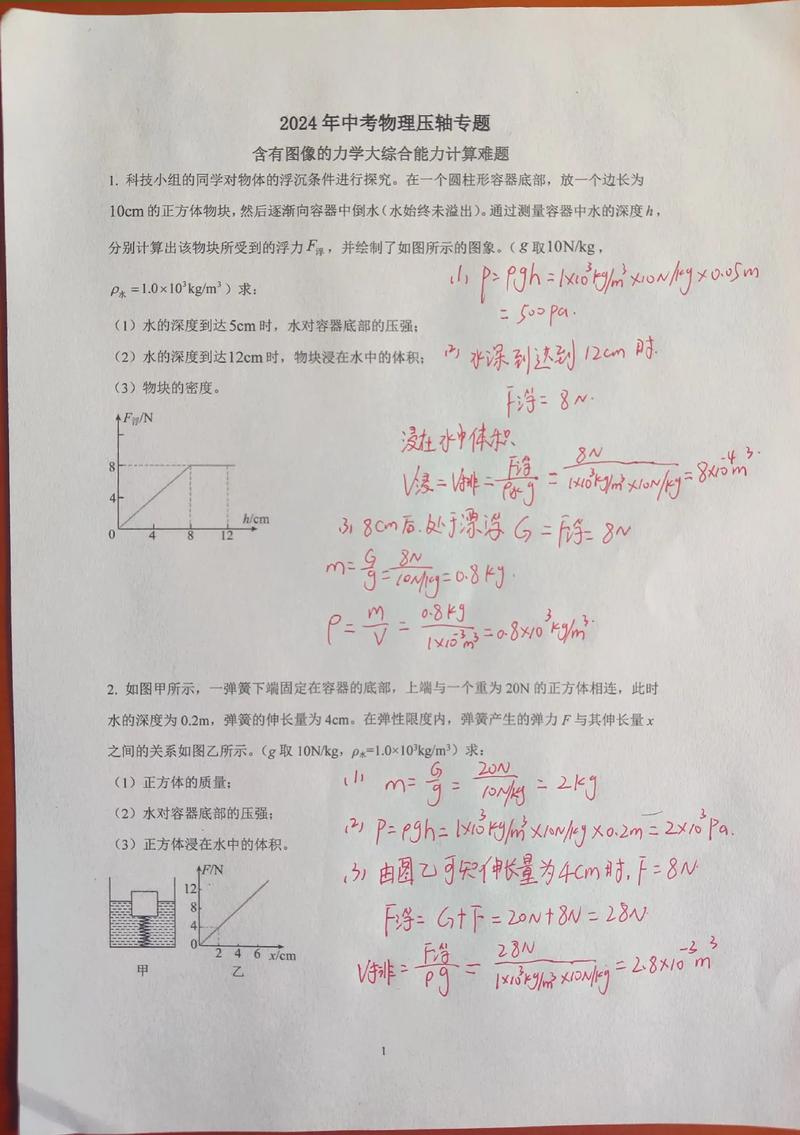 2024 年中考物理压轴专题
含有图像的力学大综合能力计算难题
1. 科技小组的同学对物体的浮沉条件进行探究。在一个圆柱形容器底部，放一个边长为
10cm 的正方体物块，然后逐渐向容器中倒水（水始终未溢出）。通过测量容器中水的深度 h，
分别计算出该物块所受到的浮力 F浮，并绘制了如图所示的图象。（ g 取10N/kg，
ρ水 =1.0×10³kg/m³ ）求：
(1) P=ρgh=1×10³kg/m³×10N/kg×0.05m
=500pa.
（1）水的深度到达5cm 时，水对容器底部的压强；
（2）水的深度到达12cm 时，物块浸在水中的体积；
(2) 水深到达到 12cm 时.
（3）物块的密度。
F浮=8N.
浸在水中体积
V浸=V排=F浮/ρ水g=8N/1×10³kg/m³×10N/kg=8×10⁻⁴m³.
(3) 8cm后.处于漂浮 G=F浮=8N
m=G/g=8N/10N/kg=0.8kg.
ρ=m/V=0.8kg/1×10⁻³m³=0.8×10³kg/m³.
F浮/N
8
4
0 4 8 12 h/cm
2. 如图甲所示，一弹簧下端固定在容器的底部，上端与一个重为 20N 的正方体相连，此时
水的深度为 0.2m，弹簧的伸长量为 4cm。在弹性限度内，弹簧产生的弹力 F 与其伸长量 x
之间的关系如图乙所示。（g 取 10N/kg，ρ水=1.0×10³kg/m³）求：
（1）正方体的质量；
(1) m=G/g=20N/10N/kg=2kg
（2）水对容器底部的压强；
(2) P=ρgh=1×10³kg/m³×10N/kg×0.2m=2×10³Pa.
（3）正方体浸在水中的体积。
(3) 由图乙可知伸长量为4cm时,F=8N.
F浮=G+F=20N+8N=28N.
V排=F浮/ρg=28N/1×10³kg/m³×10N/kg=2.8×10⁻³m³
F/N
12
8
4
0 2 4 6 x/cm
甲 乙
1